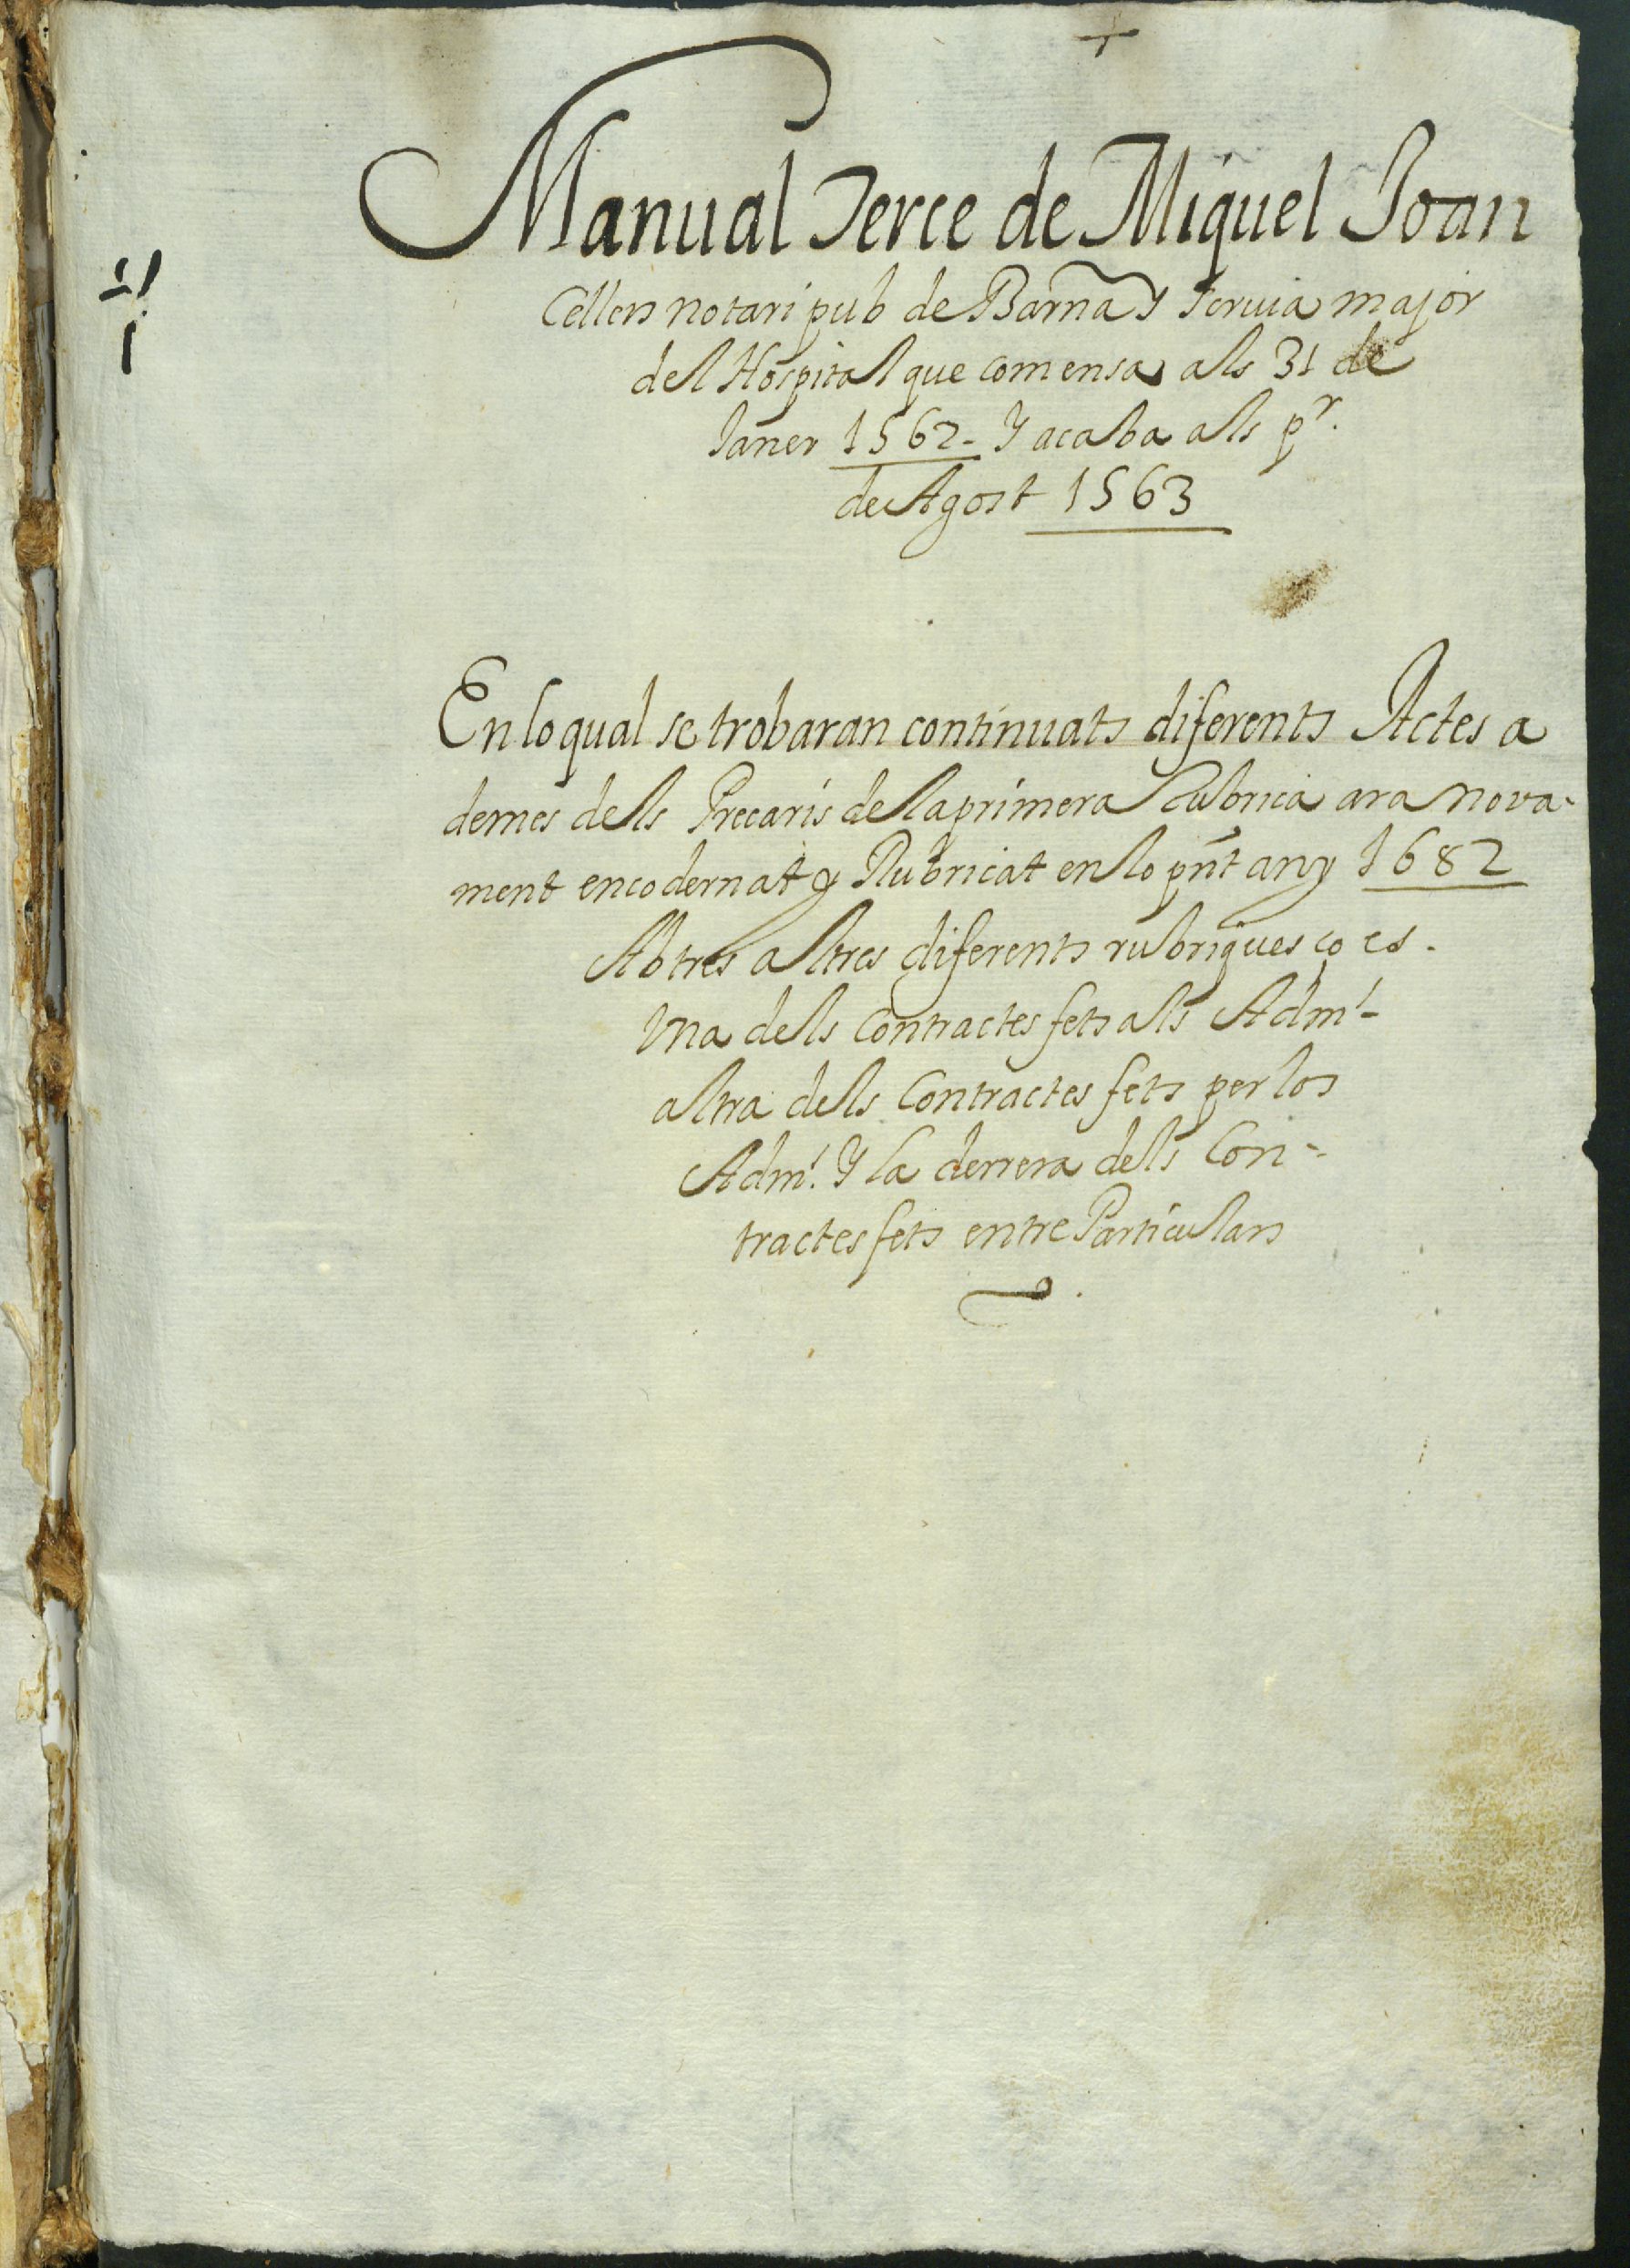 +
Manual Terce de Miquel Joan
Cellers notari pub de Barna y scriua major
del Hospital que comensa als 31 de
Janer 1562 - Y acaba als pr.
de Agost 1563
En lo qual se trobaran continuats diferents Actes a
demes dels Precaris de la primera Rubrica ara nova-
ment encodernat y Rubricat en lo pnt any 1682
Ab tres altres diferents rubriques ço es.
Vna dels Contractes fets als Adm-
altra dels Contractes fets per los
Adm. Y la derrera dels Con-
tractes fets entre Particulars